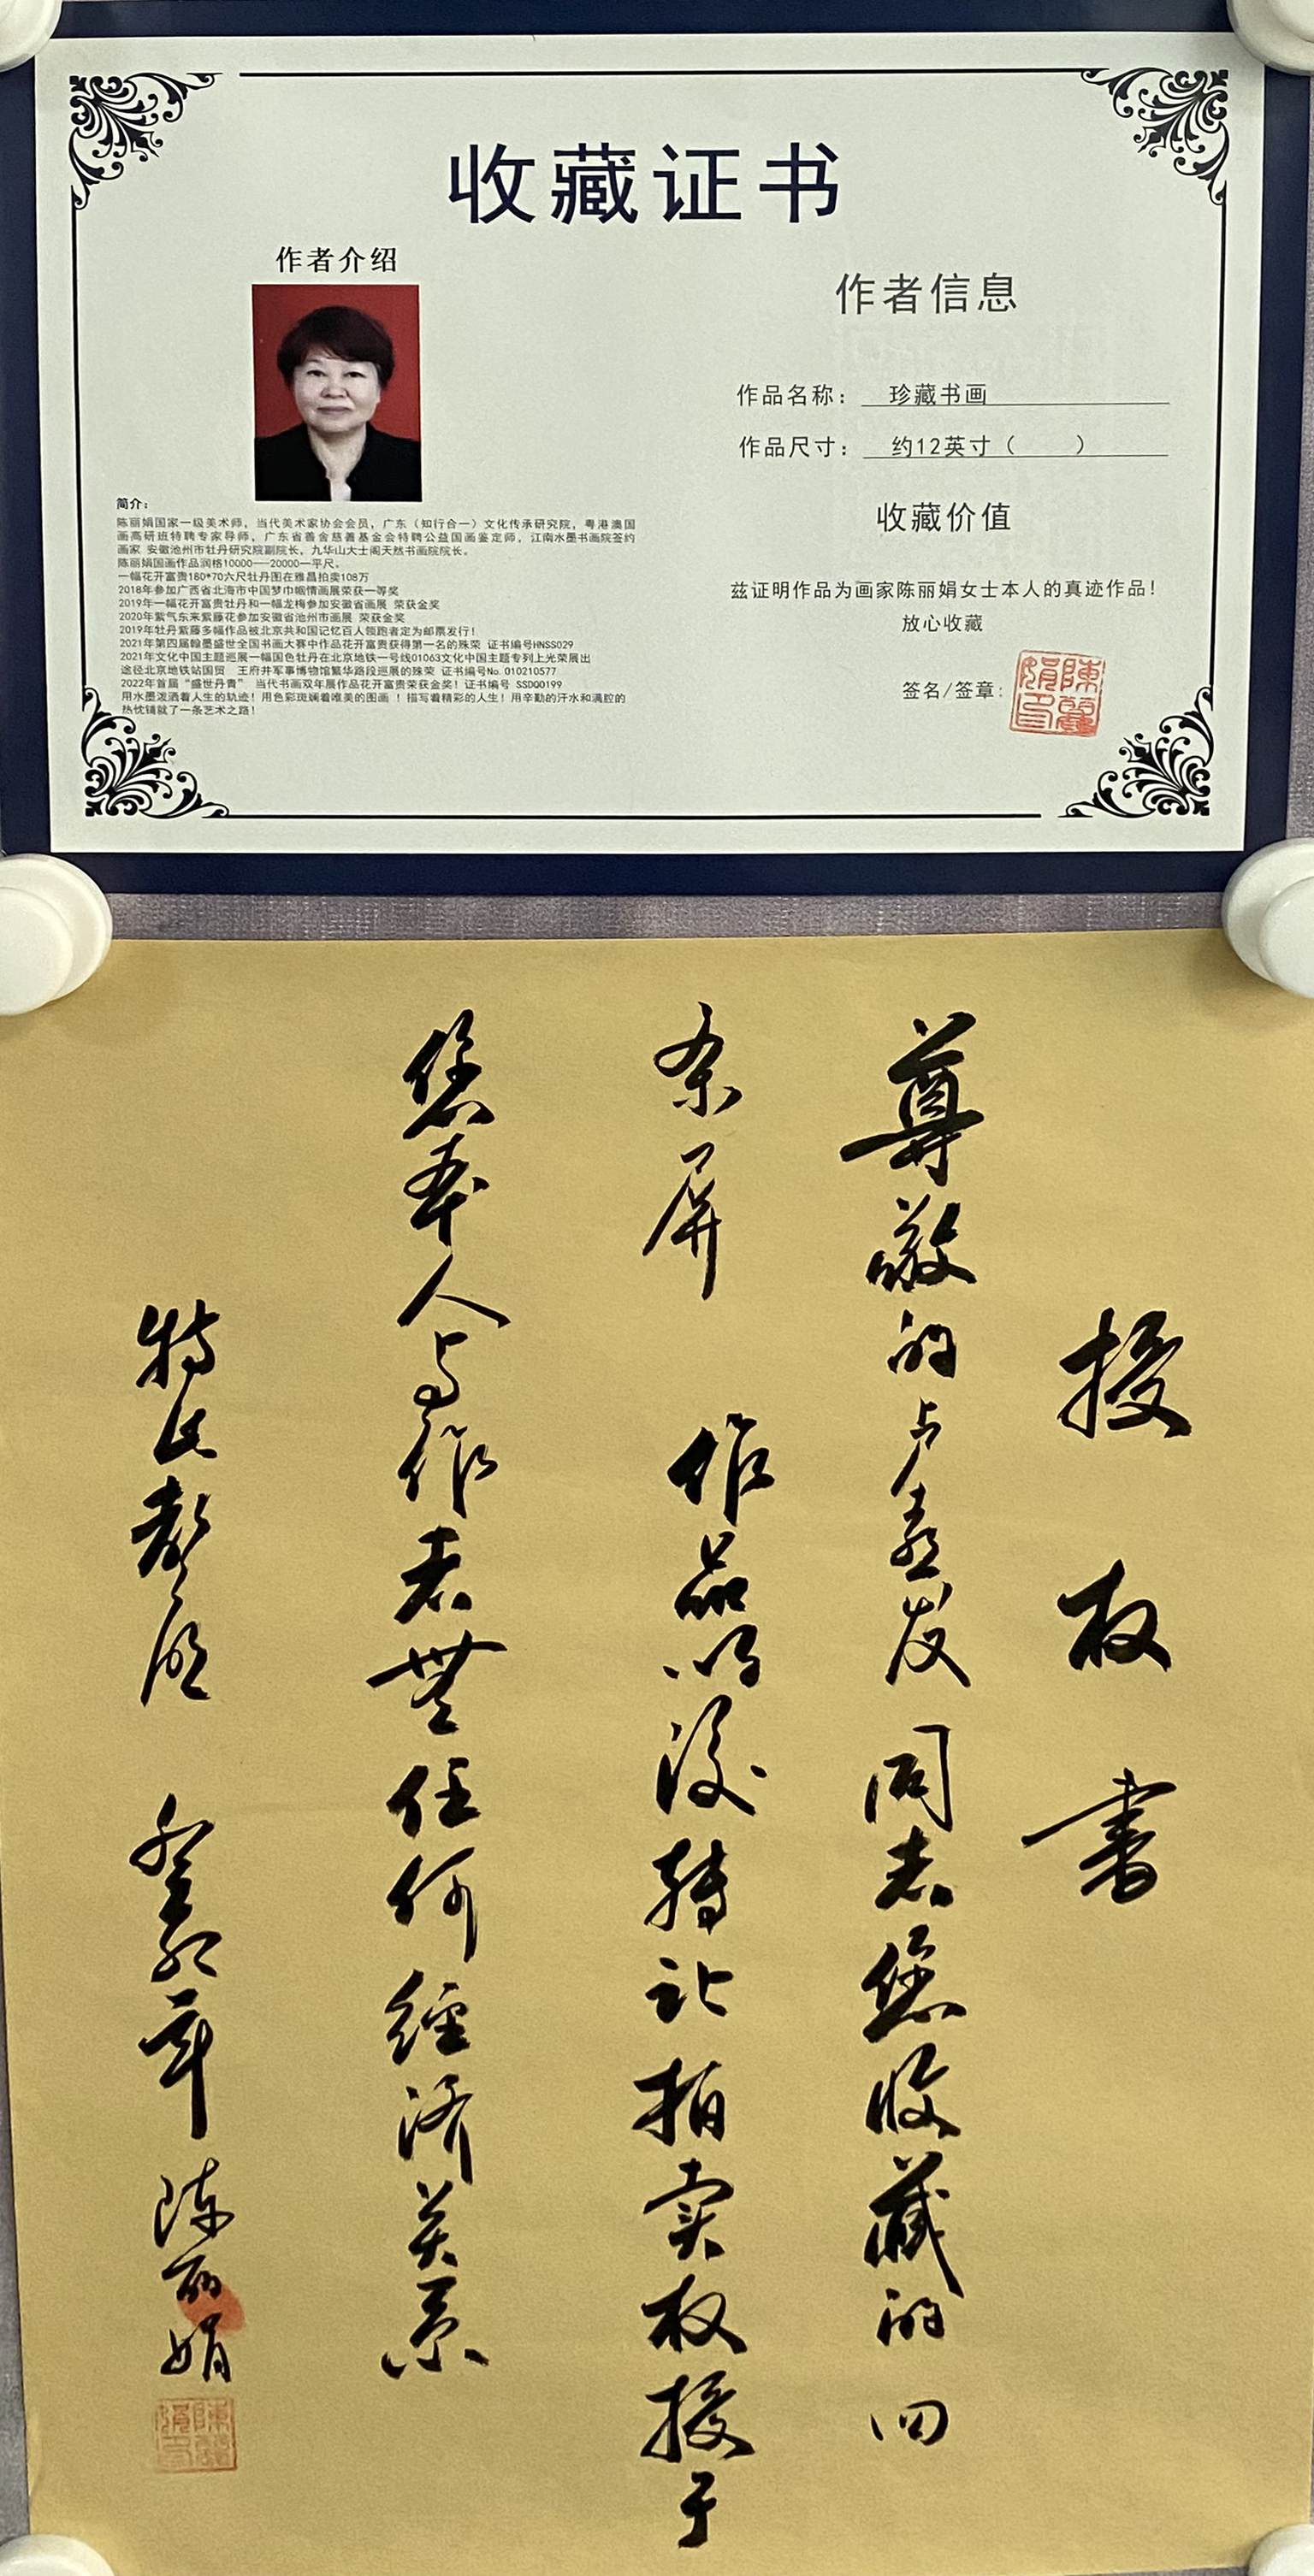 收藏证书
作者介绍
简介:
陈丽娟国家一级美术师，当代美术家协会会员，广东（知行合一）文化传承研究院，粤港澳国
画高研班特聘专家导师，广东省善舍慈善基金会特聘公益国画鉴定师，江南水墨书画院签约
画家 安徽池州市牡丹研究院副院长，九华山大士阁天然书画院院长。
陈丽娟国画作品润格10000——20000一平尺。
一幅花开富贵180*70六尺牡丹图在雅昌拍卖108万
2018年参加广西省北海市中国梦巾帼情画展荣获一等奖
2019年一幅花开富贵牡丹和一幅龙梅参加安徽省画展 荣获金奖
2020年紫气东来紫藤花参加安徽省池州市画展 荣获金奖
2019年牡丹紫藤多幅作品被北京共和国记忆百人领跑者定为邮票发行！
2021年第四届翰墨盛世全国书画大赛中作品花开富贵获得第一名的殊荣 证书编号HNSS029
2021年文化中国主题巡展一幅国色牡丹在北京地铁一号线01063文化中国主题专列上光荣展出
途径北京地铁站国贸 王府井军事博物馆繁华路段巡展的殊荣 证书编号No.010210577
2022年首届“盛世丹青” 当代书画双年展作品花开富贵荣获金奖！证书编号 SSDQ0199
用水墨泼洒着人生的轨迹！用色彩斑斓着唯美的图画 ！描写着精彩的人生！用辛勤的汗水和满腔的
热忱铺就了一条艺术之路！
作者信息
作品名称: 珍藏书画
作品尺寸: 约12英寸（ ）
收藏价值
兹证明作品为画家陈丽娟女士本人的真迹作品！
放心收藏
签名/签章:
陳麗娟印
授权書
尊敬的卢发同志您收藏的四
条屏 作品以后转让拍卖权授于
您本人与作者無任何經济关系
特此声明 癸卯年 陈丽娟
陳麗娟印